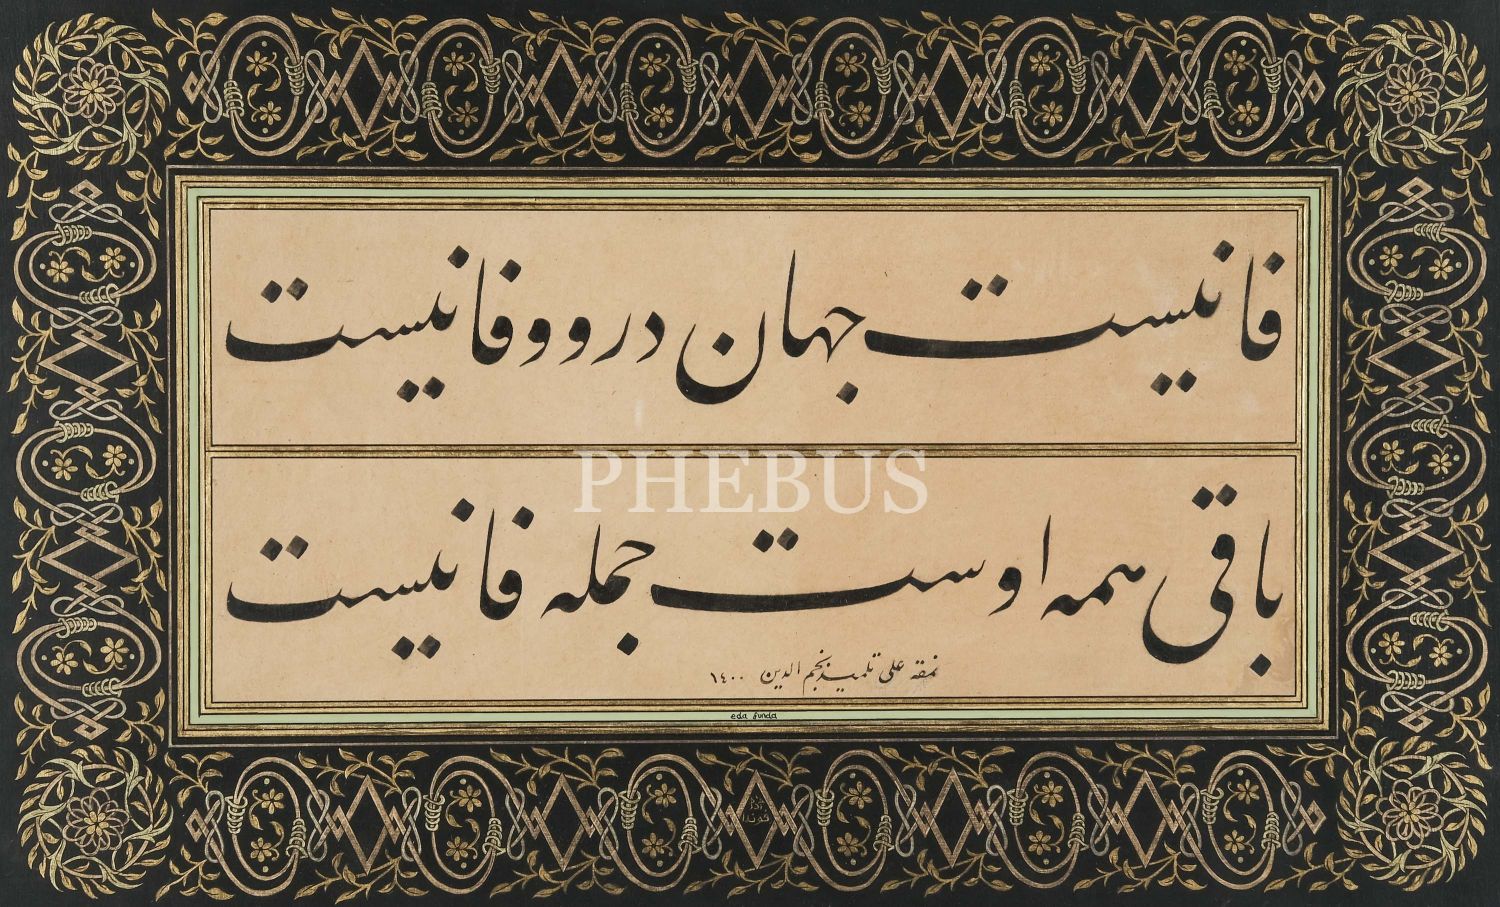 فانیست جهان درو وفا نیست
باقی همه اوست جمله فانیست
نمقه علی تلمیذ نجم الدین ١٤٠٠
eda funda
PHEBUS